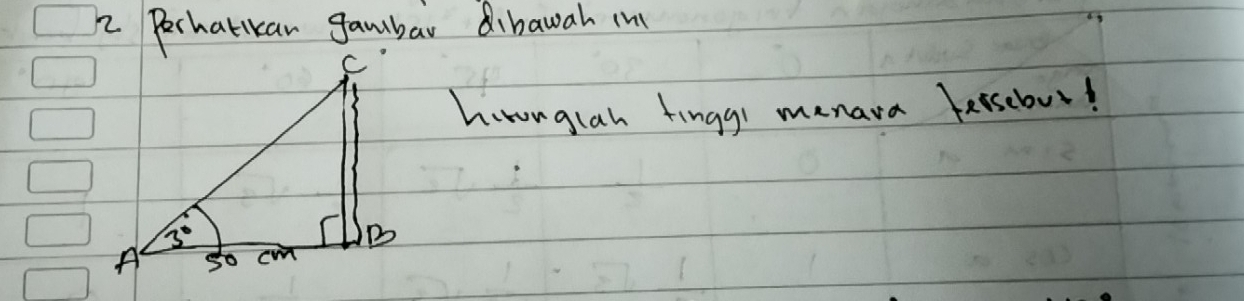 2 Perhatikan gambar dibawah ini
C
hitunglah tinggi menara tersebut!
3°
A
B
50 cm